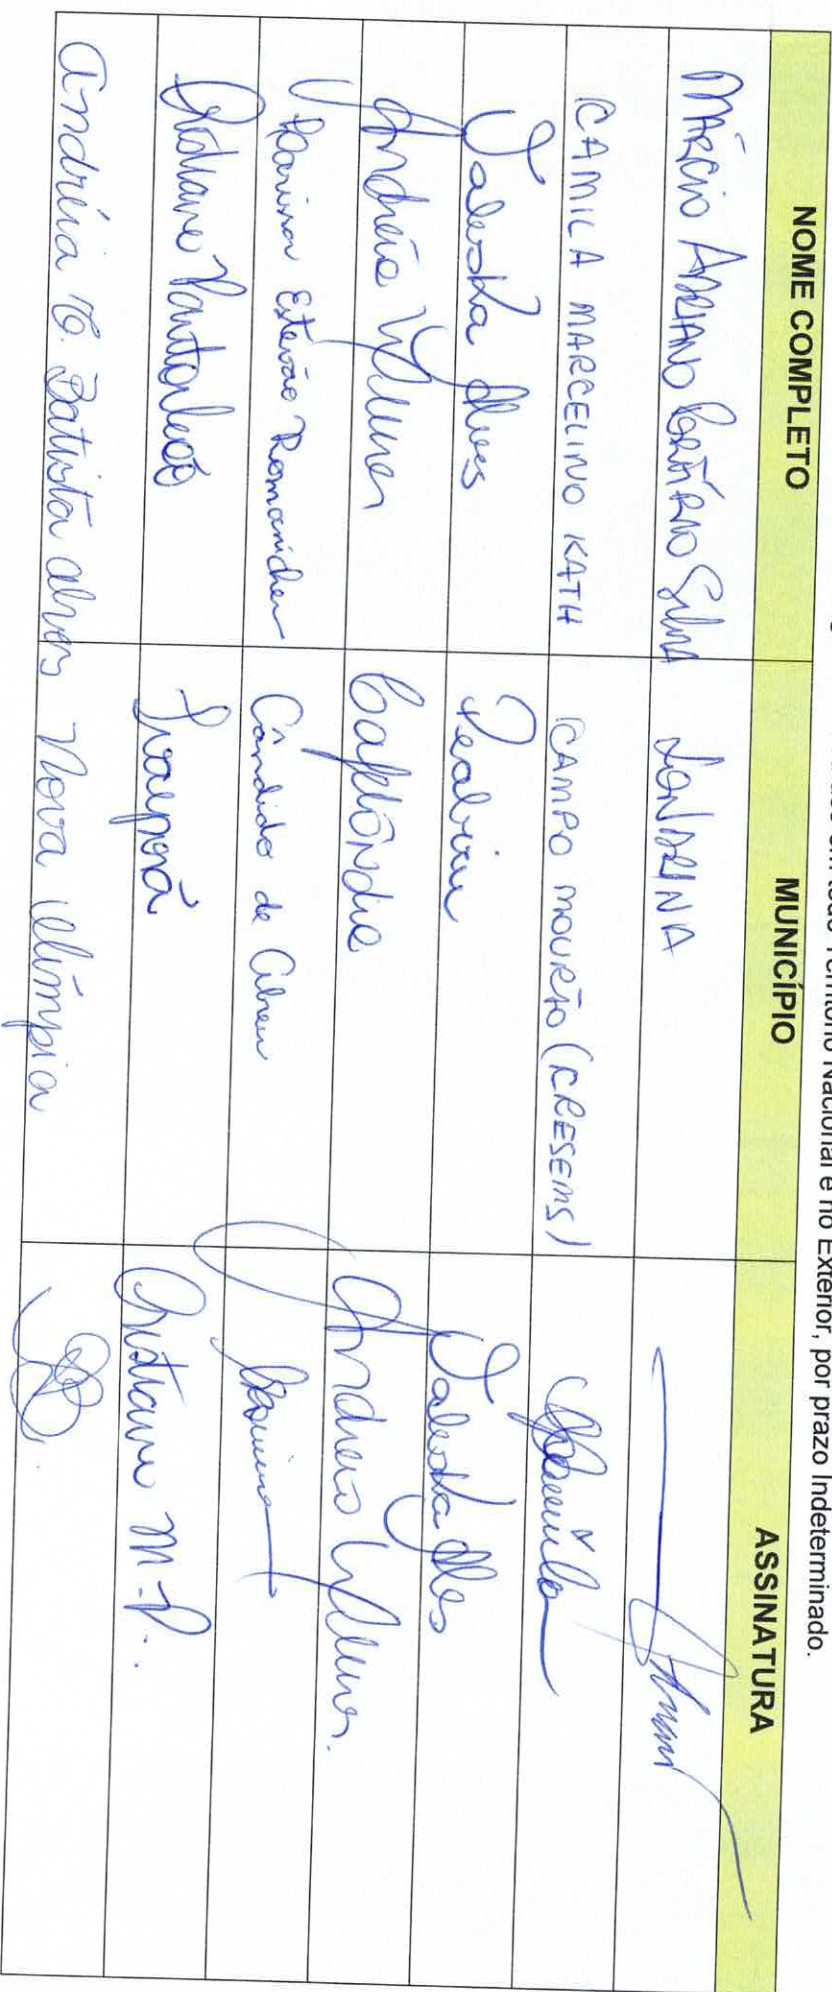 Território Nacional e no Exterior, por prazo Indeterminado.
NOME COMPLETO MUNICÍPIO ASSINATURA
MÁRCIO ADRIANO Silva LONDRINA
CAMILA MARCELINO KATH CAMPO MOURÃO (CRESEMS) Camila
Valeska Alves Peabiru Valeska Alves
Andréia Cafelândia Andréia
Estevão Romanichen Cândido de Abreu
Cristiane Pantaleão Ivaiporã Cristiane M. P.
Andréia Batista Alves Nova Olímpia